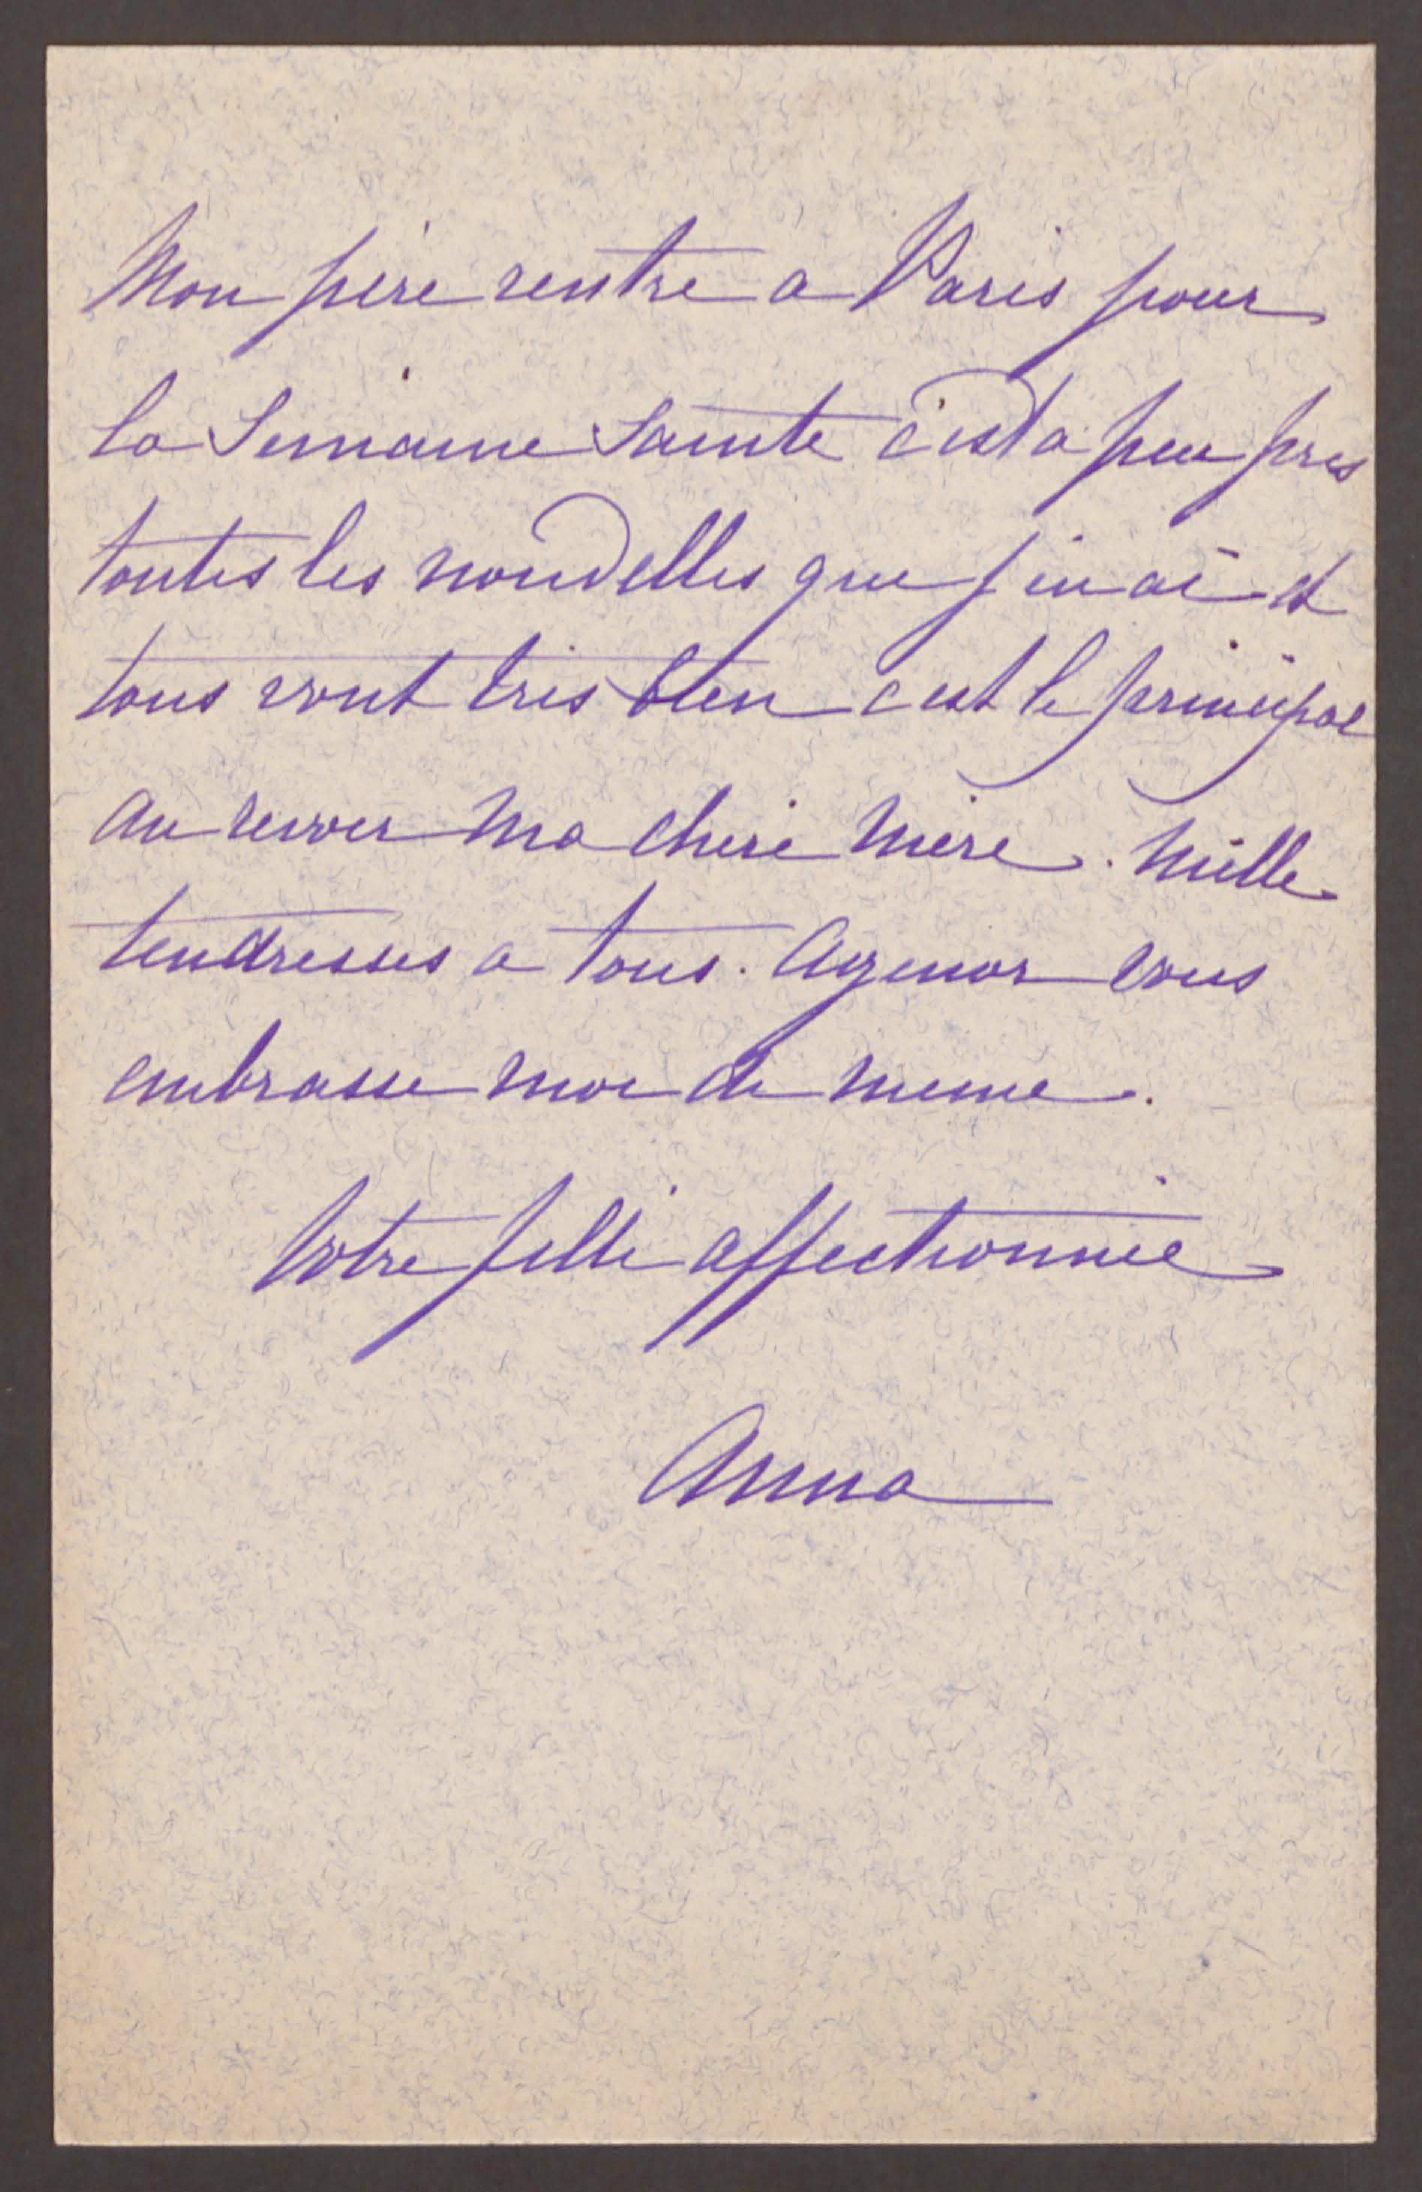 Mon père rentre a Paris pour
la Semaine Sainte c'est a peu pres
toutes les nouvelles que j'en ai et
tous vont tres bien c'est le principal
au revoir Ma chere Mère. Mille
tendresses a tous. Agenor vous
embrasse moi de meme.
Votre fille affectionnée
Anna